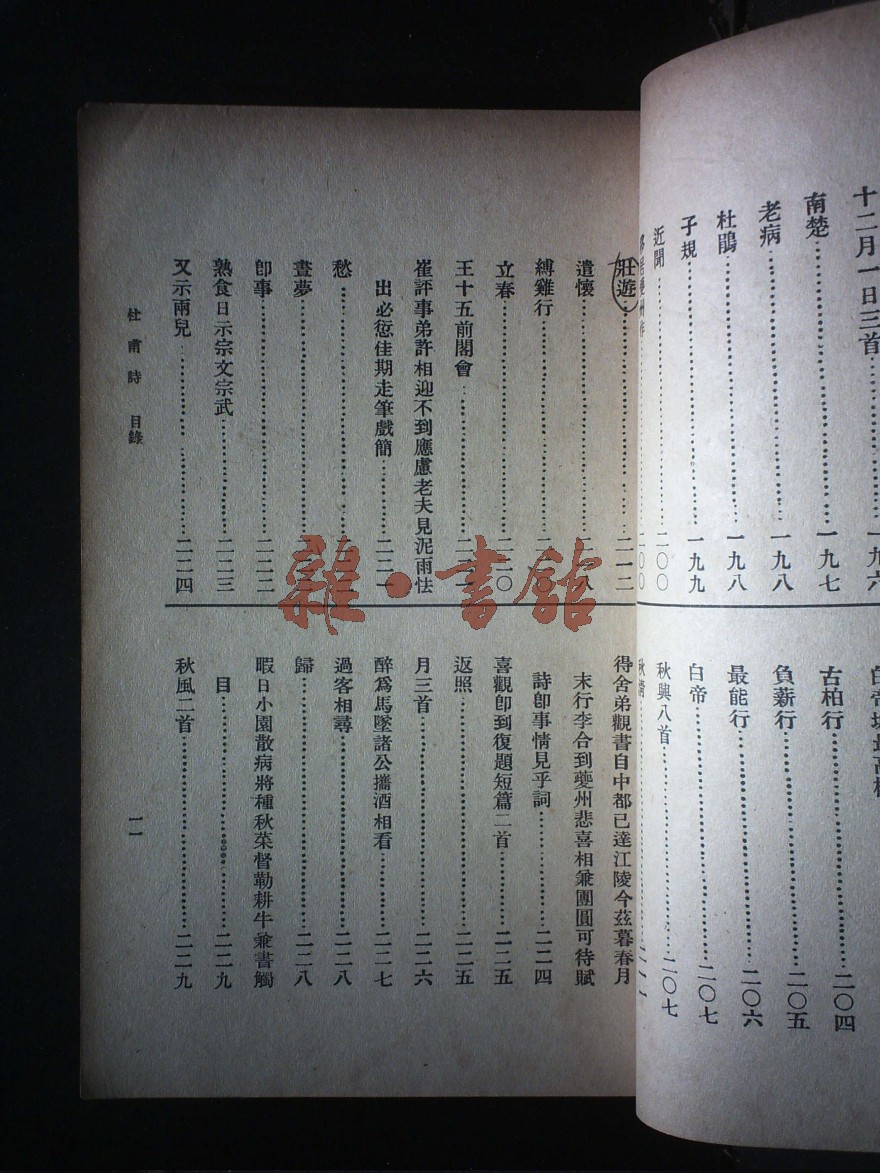 十二月一日三首……一九六
南楚……一九七
老病……一九八
杜鵑……一九八
子規……一九九
近聞……二〇〇
夔州……二〇〇
古柏行……二〇四
負薪行……二〇五
最能行……二〇六
白帝……二〇七
秋興八首……二〇七
壯遊……二一二
遣懷……
縛雞行……
立春……二二〇
王十五前閣會……
崔評事弟許相迎不到應慮老夫見泥雨怯
出必愆佳期走筆戲簡……二二一
愁……
晝夢……
卽事……二二二
熟食日示宗文宗武……二二三
又示兩兒……二二四
得舍弟觀書自中都已達江陵今茲暮春月
末行李合到夔州悲喜相兼團圓可待賦
詩卽事情見乎詞……二二四
喜觀卽到復題短篇二首……二二五
返照……二二五
月三首……二二六
醉爲馬墜諸公攜酒相看……二二七
過客相尋……二二八
歸……二二八
暇日小園散病將種秋菜督勒耕牛兼書觸
目……二二九
秋風二首……二二九
杜甫詩 目錄
一一
雜·書館